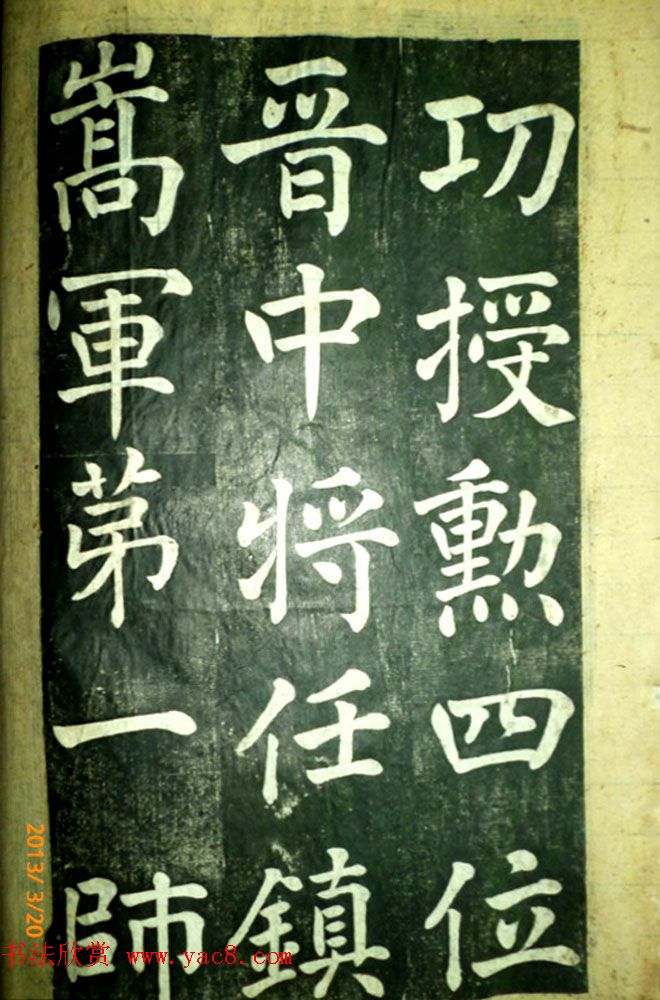 功授勳四位
晉中将任鎮
嵩軍苐一師
2013/3/20
书法欣赏 www.yac8.com